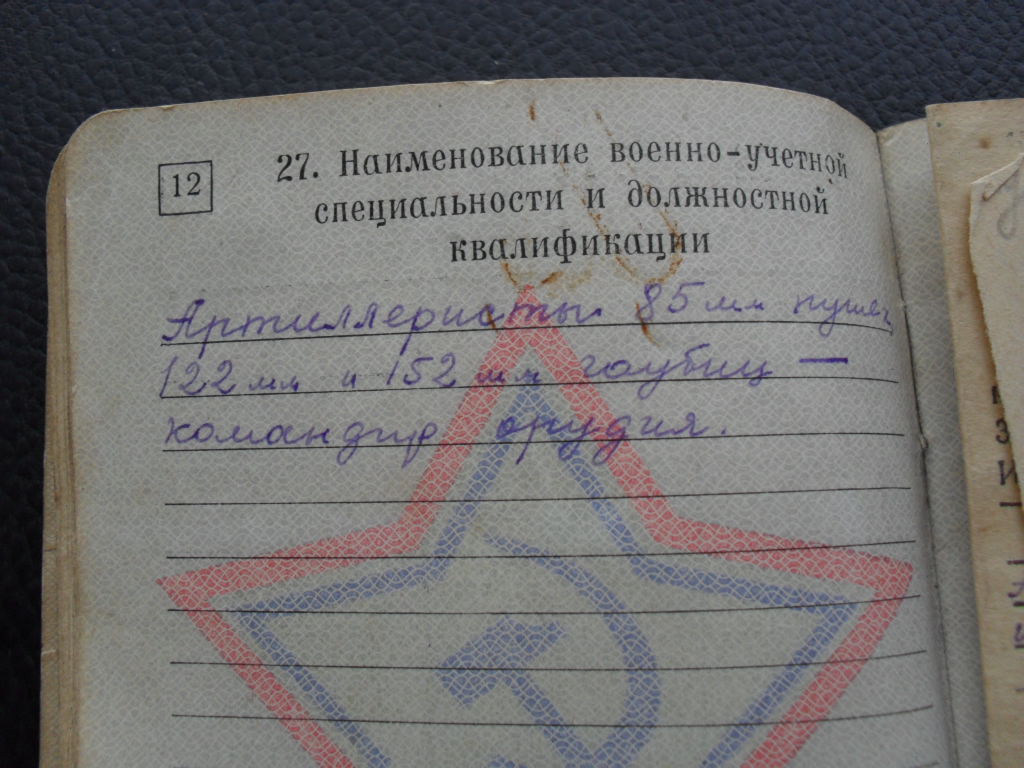 12
27. Наименование военно-учетной
специальности и должностной
квалификации
Артиллеристы 85 мм пушек,
122 мм и 152 мм гаубиц —
командир орудия.